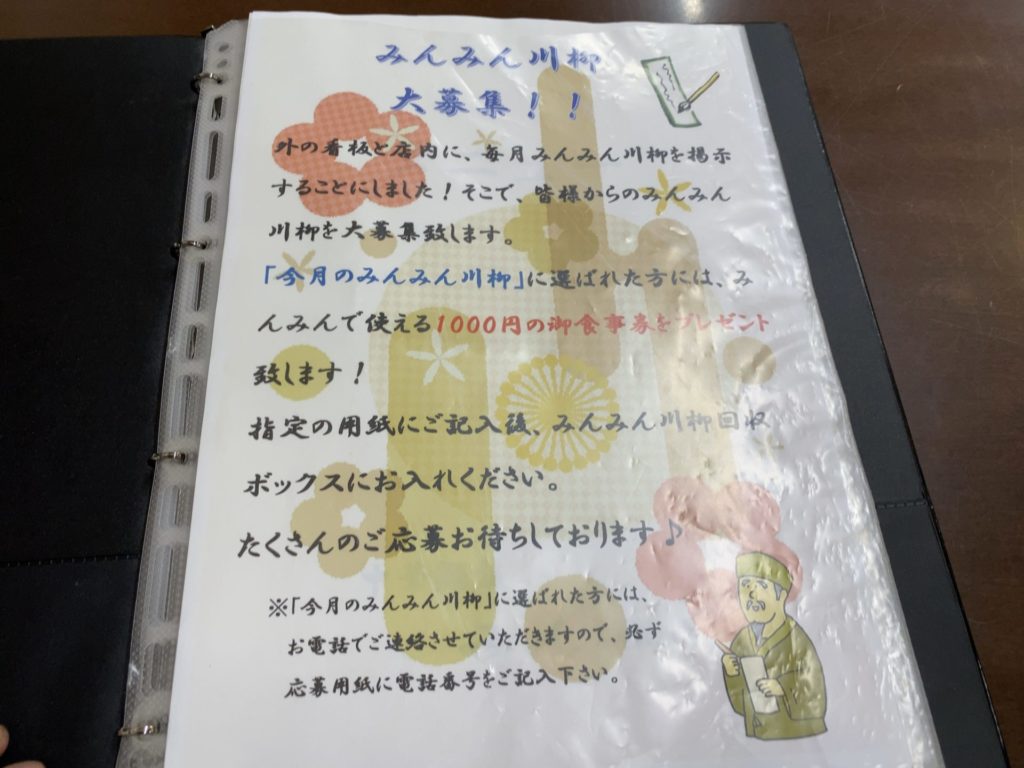 みんみん川柳
大募集！！
外の看板と店内に、毎月みんみん川柳を掲示
することにしました！そこで、皆様からのみんみん
川柳を大募集致します。
「今月のみんみん川柳」に選ばれた方には、み
んみんで使える1000円の御食事券をプレゼント
致します！
指定の用紙にご記入後、みんみん川柳回収
ボックスにお入れください。
たくさんのご応募お待ちしております♪
※「今月のみんみん川柳」に選ばれた方には、
お電話でご連絡させていただきますので、必ず
応募用紙に電話番号をご記入下さい。